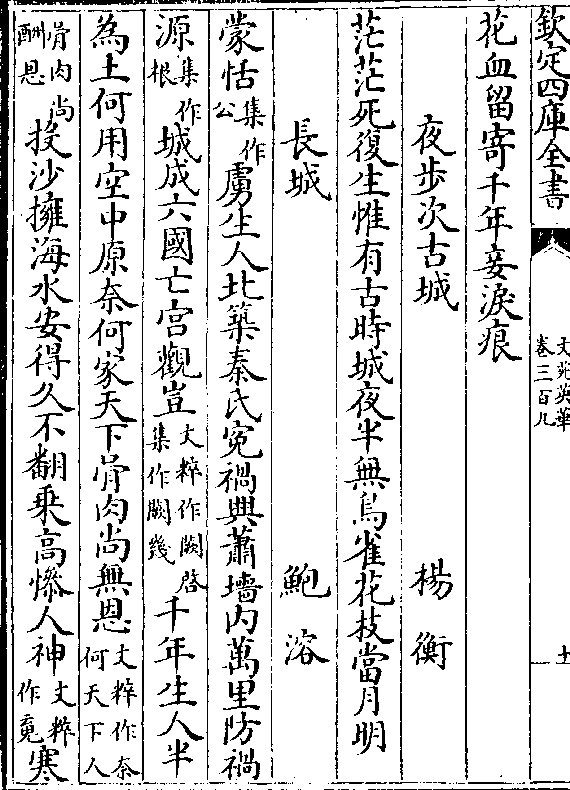 欽定四庫全書
文苑英華
卷三百九
十一
花血留寄千年妾淚痕
夜步次古城 楊衡
茫茫死復生惟有古時城夜半無鳥雀花枝當月明
長城 鮑溶
蒙恬集作公虜生人北築秦氏冤禍興蕭墻内萬里防禍
源集作根城成六國亡宮觀豈文粹作闕啓集作闕幾千年生人半
為土何用空中原奈何家天下骨肉尚無恩文粹作奈何天下人
骨肉尚酬恩投沙擁海水安得久不翻乗高慘人神文粹作竟寒